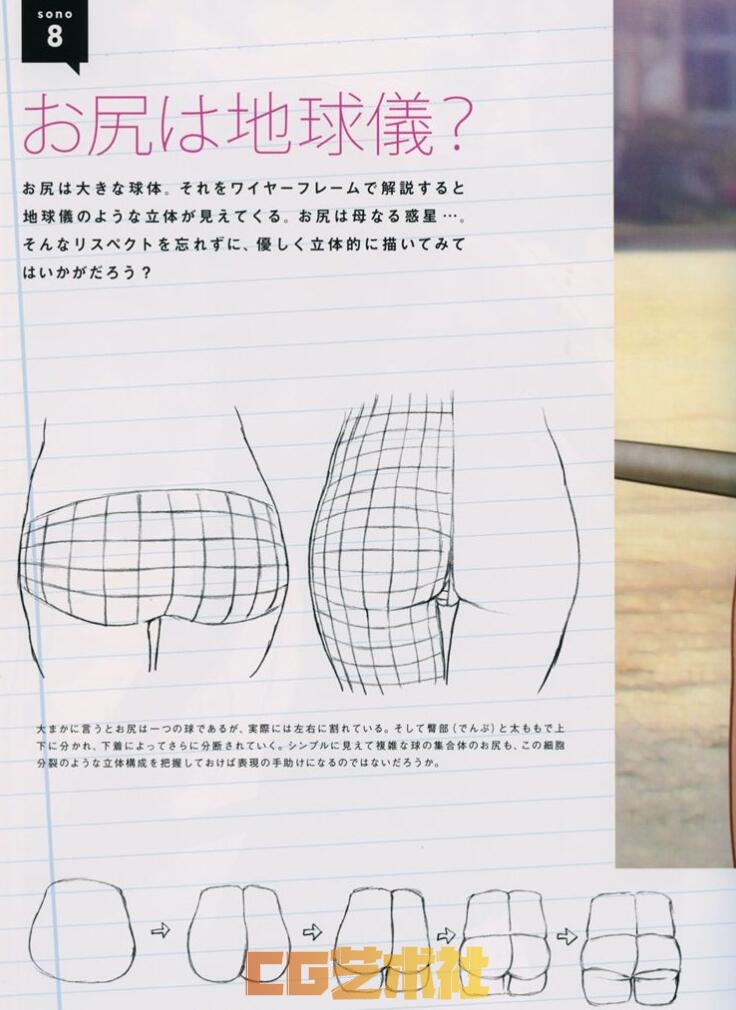 sono
8
お尻は地球儀？
お尻は大きな球体。それをワイヤーフレームで解説すると
地球儀のような立体が見えてくる。お尻は母なる惑星…。
そんなリスペクトを忘れずに、優しく立体的に描いてみて
はいかがだろう？
大まかに言うとお尻は一つの球であるが、実際には左右に割れている。そして臀部（でんぶ）と太ももで上
下に分かれ、下着によってさらに分断されていく。シンプルに見えて複雑な球の集合体のお尻も、この細胞
分裂のような立体構成を把握しておけば表現の手助けになるのではないだろうか。
CG艺术社